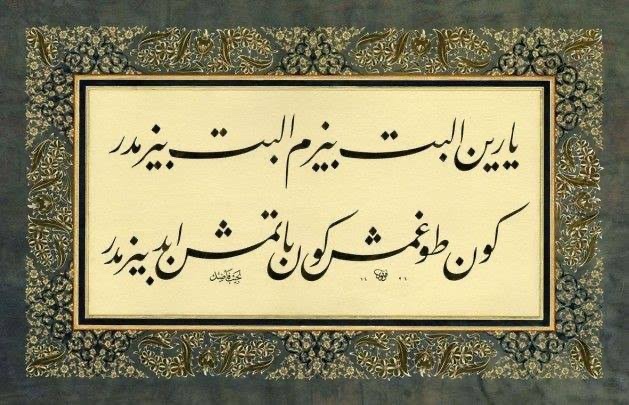 یارین البت بیزم البت بیزمدر
کون طوغمش کون باتمش ابد بیزمدر
نجیب فاضل